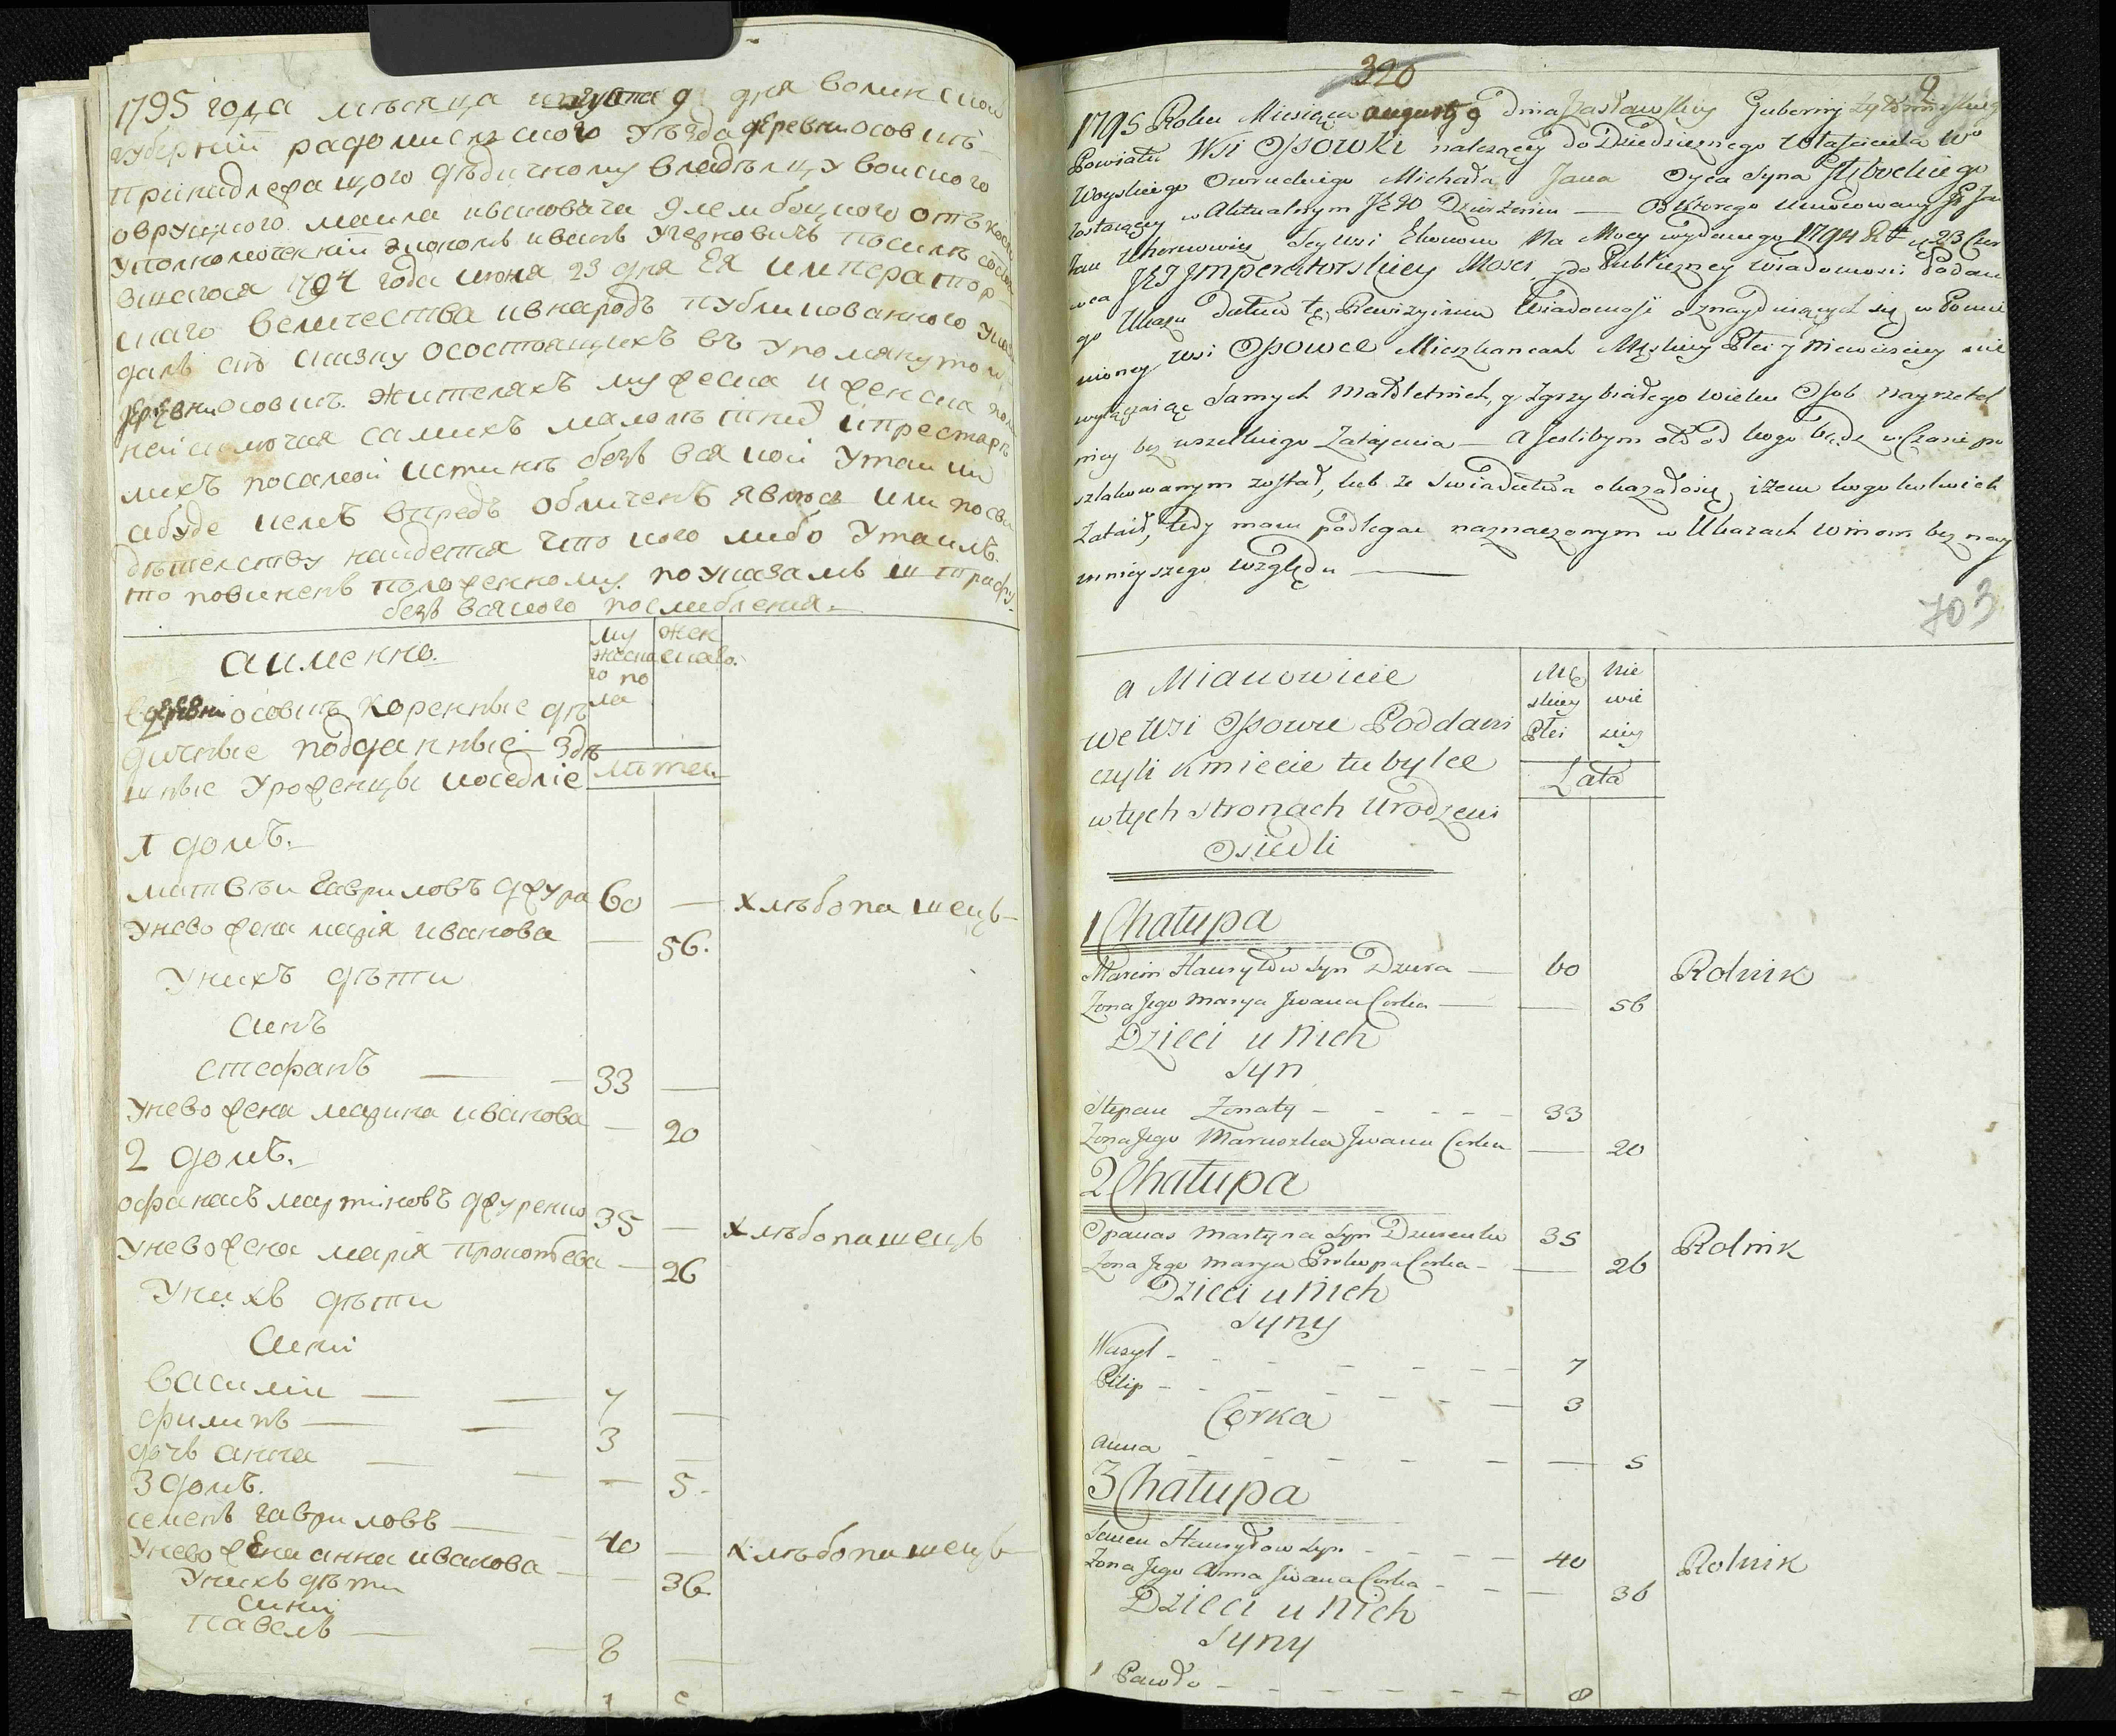 1795 года мѣсяца августа 9 дня волинской
губернiи радомисльского уѣзда деревни осовцъ
принадлежащого дѣдичному владѣлцу войского
овруцкого маила ивановича длембоцкого отъ
уполномоченiй экономъ иванъ ухерновичъ посилѣ состо
явшегося 1794 года июня 23 дня Ея император
скаго величества ивнародъ публикованного указа
далъ сiю сказку осостоящихъ въ упомянутой
деревни осовцъ жителяхъ мужеска и женска пола
неисключая самихъ малолѣтнихъ iпрестарѣ
лихъ посамой истинѣ безъ всякой утайки
абуде кемъ впредъ обличенъ явлюсъ или посви
дѣтелству найдется что кого либо утаилъ
то повиненъ положенному поуказамъ штрафу
безъ всякого послабления.
аимѣнно.
му жеска го по ла
жен скаго.
вдеревнi осовцъ коренные дѣ
дичные подданные здѣ
шные уроженцы иоседлiе
лѣтеи
1 домъ.
матвѣи гавриловъ джура 60 — хлѣбопашецъ
унево жена марiя иванова — 56.
унихъ дѣти
синъ
стефанъ — 33 —
унево жена марина иванова — 20
2 домъ.
офанасъ мартiновъ джуренко 35 — хлѣбопашецъ
унево жена марiя прокофева — 26
унихъ дѣти
сини
василiи — 7 —
филипъ — 3 —
дочъ анна — 5.
3 домъ.
семенъ гавриловъ — 40 — хлѣбопашецъ
унево жена анна иванова — 36.
унихъ дѣти
сини
павелъ — 8 —
320
9
1795 Roku Miesiąca augusty 9 Dnia Jzasławskiey Gubernij Żytomirskiego
Powiatu Wsi Ossowki należącey do Dziedzicznego Własciciela W°
Woyskiego Owruckiego Michała Jana Oyca Syna Głębockiego
zostaiącey w Aktualnym JEGO Dzierżeniu — Od Ktorego Umocowany
Jan Uhernowicz teyWsi Ekonom Na Mocy wydanego 1794 R. d. 23 Czer
wca JEJ Jmperatorskiey Mosci y do Publiczney wiadomosci Podane
go Ukazu Datum tę Rewizyiną Wiadomosć o znayduiących się w Pomie
nioney Wsi Ossowce Mieszkancach Męskiey Płci y Niewiesciey nie
wyłączaiąc Samych Małoletnich, y Zgrzybiałego wieku Osob nayrzetel
niey bez wszelkiego Zataienia — A Jeslibym od kogo bądz w Czasie po
szlakowanym został, lub ze Swiadectwa okazałosię, iżem kogo kolwiek
Zataił, tedy mam podlegać naznaczonym w Ukazach winom bez nay
mnieyszego względu —
703
a Mianowicie
Mę skiey Płci
Nie wie sciey
we Wsi Ossowce Poddani
czyli Kmiecie tubylce
wtych Stronach Urodzeni
Osiedli
Lata
1 Chałupa
Marcin Hauryłow Syn Dziura — 60 Rolnik
Żona Jego Marya Jwana Corka — 56
Dzieci u Nich
Syn
Stepan Żonaty - - - - 33
Żona Jego Maruszka Jwana Corka — 20
2 Chałupa
Opanas Martyna Syn Dziurenko 35 Rolnik
Żona Jego Marya Prokopa Corka - — 26
Dzieci u Nich
Syny
Wasyl - - - - - - 7
Pilip - - - - - - 3
Corka
Anna - - - - - — 5
3 Chałupa
Semen Hauryłow Syn - - - - 40 Rolnik
Żona Jego Anna Jwana Corka - - — 36
Dzieci u Nich
Syny
1 Pawło - - - - - - 8